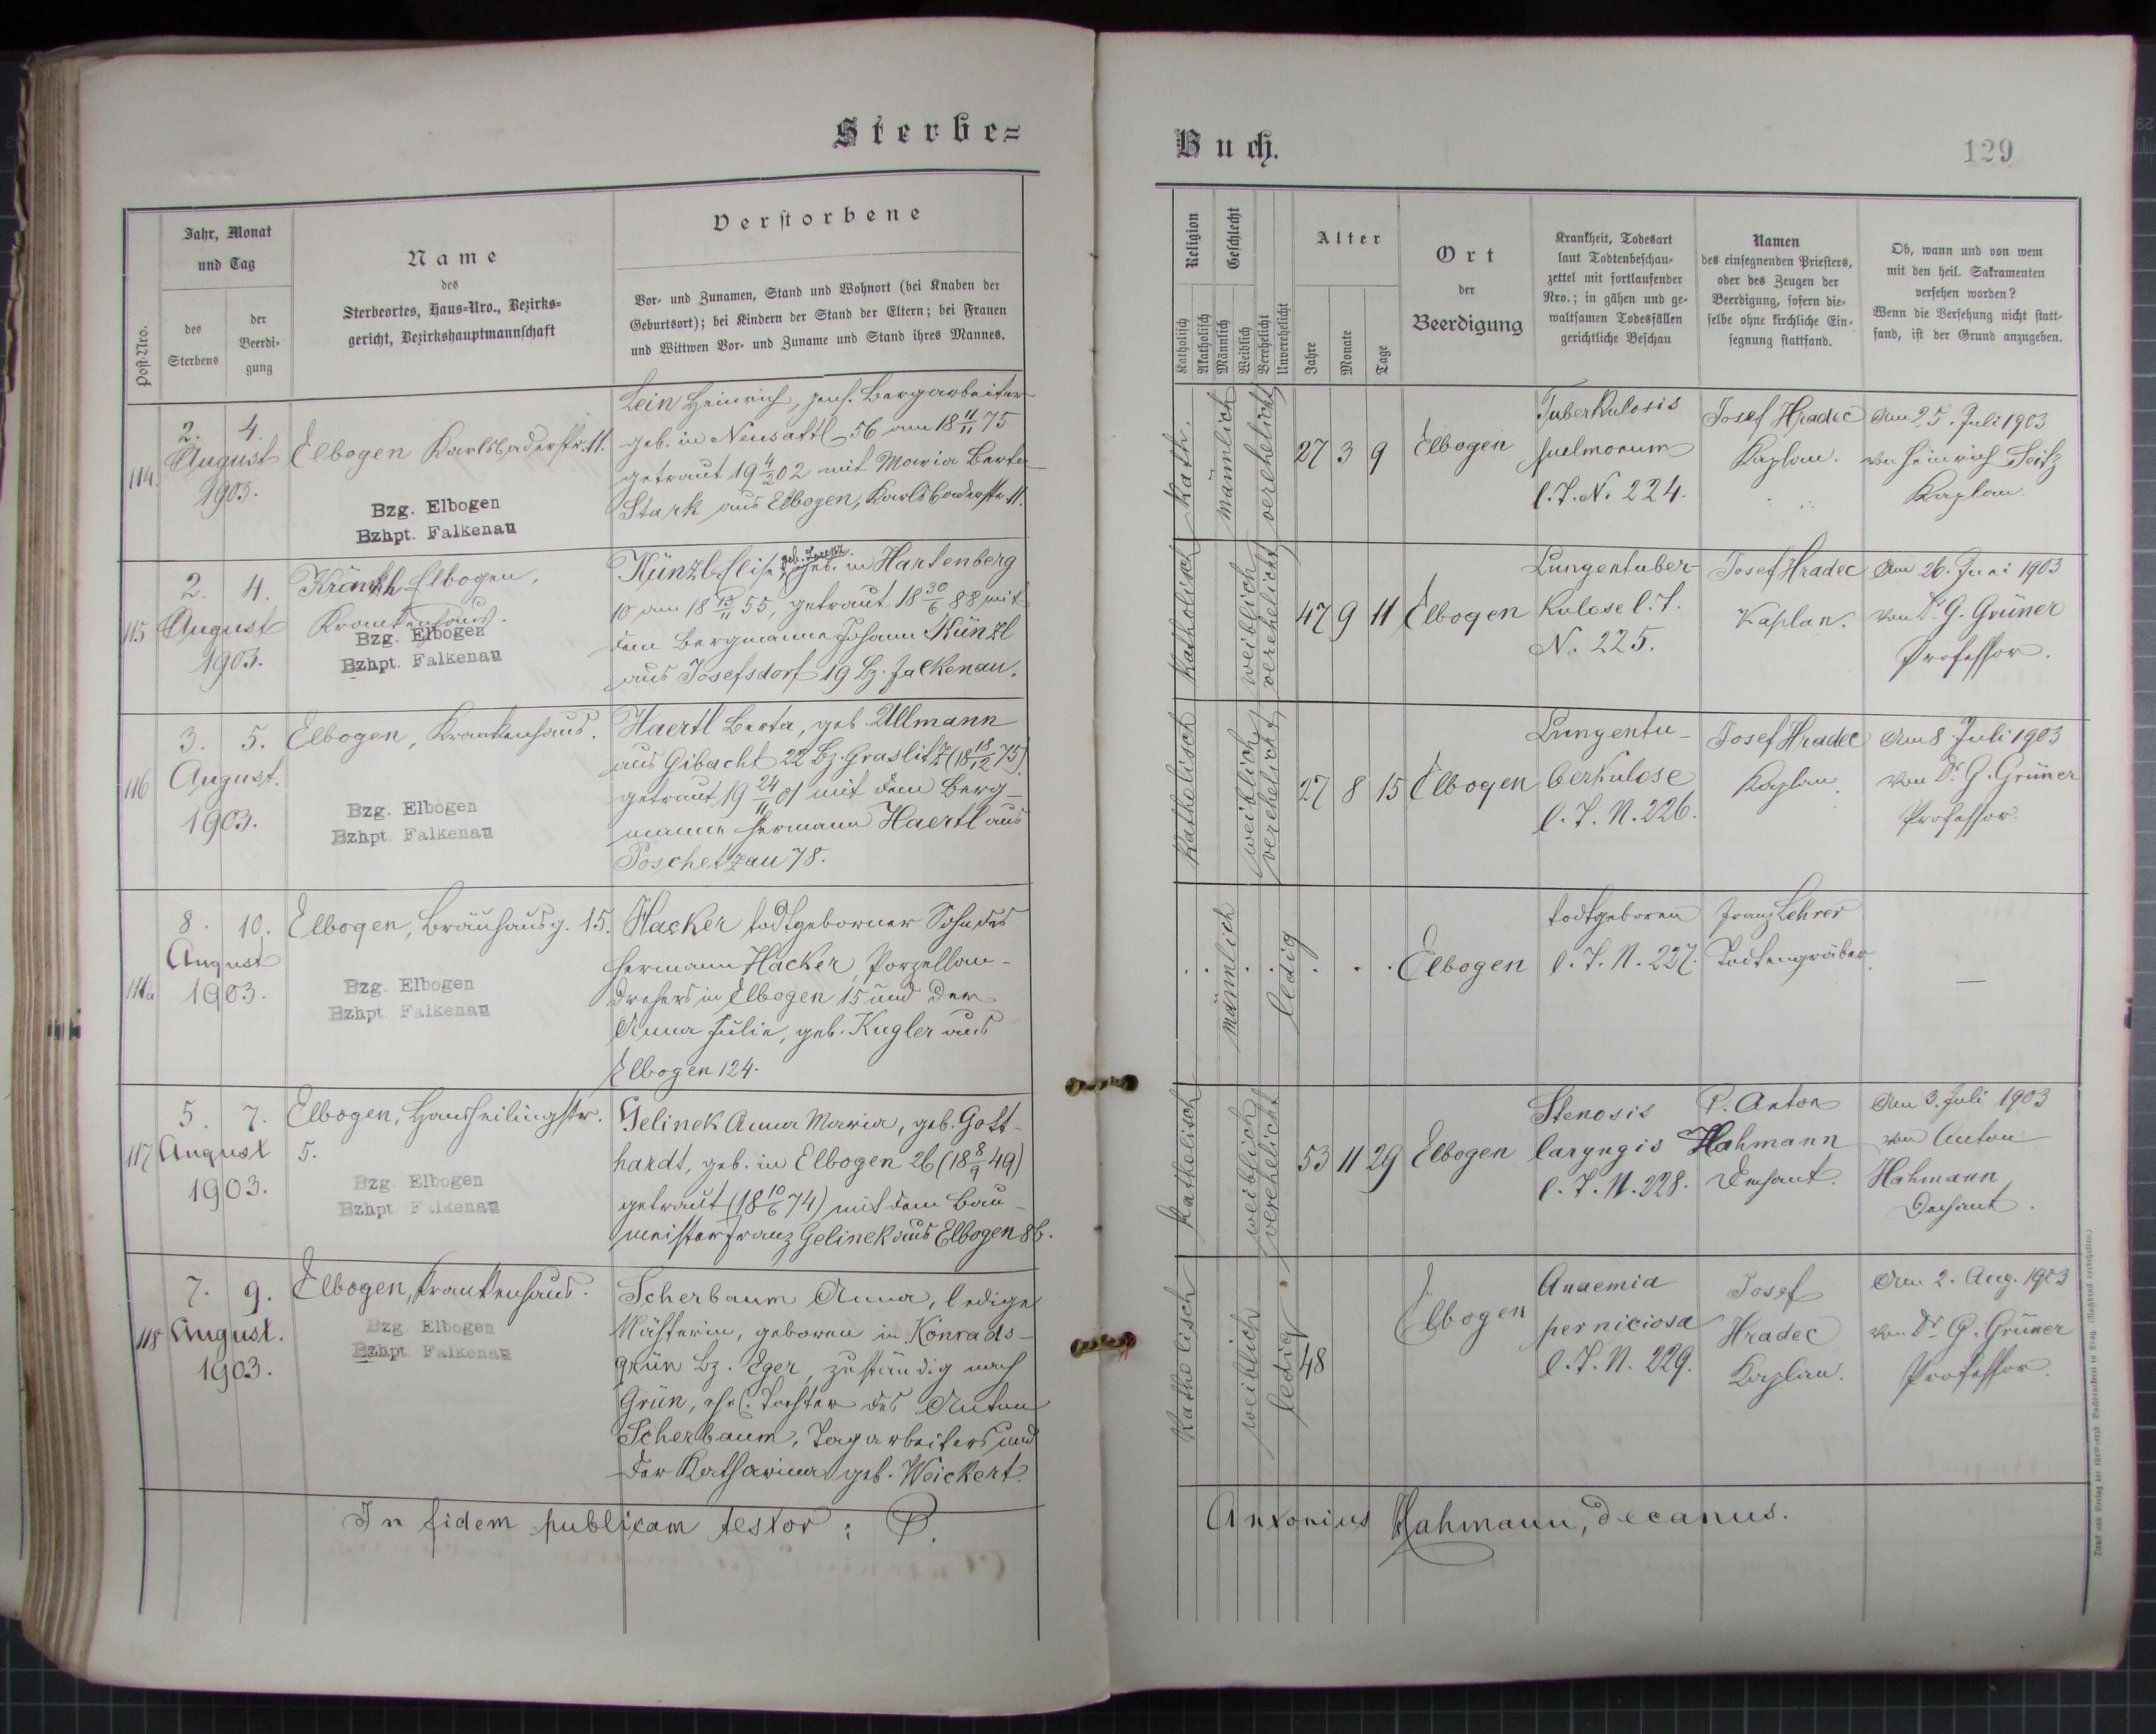 Sterbe=
Buch.
129
Post-Nro.
Jahr, Monat
und Tag
des
Sterbens
der
Beerdi-
gung
Name
des
Sterbeortes, Haus-Nro., Bezirks-
gericht, Bezirkshauptmannschaft
Verstorbene
Vor- und Zunamen, Stand und Wohnort (bei Knaben der
Geburtsort); bei Kindern der Stand der Eltern; bei Frauen
und Wittwen Vor- und Zuname und Stand ihres Mannes.
Religion
Katholisch
Akatholisch
Geschlecht
Männlich
Weiblich
Verehelicht
Unverehelicht
Alter
Jahre
Monate
Tage
Ort
der
Beerdigung
Krankheit, Todesart
laut Todtenbeschau-
zettel mit fortlaufender
Nro.; in gähen und ge-
waltsamen Todesfällen
gerichtliche Beschau
Namen
des einsegnenden Priesters,
oder des Zeugen der
Beerdigung, sofern die-
selbe ohne kirchliche Ein-
segnung stattfand.
Ob, wann und von wem
mit den heil. Sakramenten
versehen worden?
Wenn die Versehung nicht statt-
fand, ist der Grund anzugeben.
114.
2. 4.
August
1903.
Elbogen Karlsbaderstr. 11.
Bzg. Elbogen
Bzhpt. Falkenau
Lein Heinrich, pens. Bergarbeiter
geb. in Neusattl 56 am 18 11/11 75
getraut 19 4/2 02 mit Maria Berta
Stark aus Elbogen, Karlsbaderstr. 11.
kath.
männlich
verehelicht
27 3 9
Elbogen
Tuberkulosis
pulmonum
l. T. N. 224.
Josef Hradec
Kaplan.
Am 25. Juli 1903
von Heinrich Seitz
Kaplan.
115
2. 4.
August
1903.
Elbogen,
Krankenhaus.
Bzg. Elbogen
Bzhpt. Falkenau
Künzl Elise, geb. Lorenz. geb. in Hartenberg
10 am 18 13/11 55, getraut 18 30/6 88 mit
dem Bergmanne Johann Künzl
aus Josefsdorf 19 Bz. Falkenau.
katholisch
weiblich
verehelicht
47 9 11
Elbogen
Lungentuber-
kulose l. T.
N. 225.
Josef Hradec
Kaplan.
Am 26. Juni 1903
von Dr G. Grüner
Professor.
116
3. 5.
August.
1903.
Elbogen, Krankenhaus.
Bzg. Elbogen
Bzhpt. Falkenau
Haertl Berta, geb. Ullmann
aus Gibacht 22 Bz. Graslitz (18 18/12 75)
getraut 19 24/11 01 mit dem Berg-
manne Hermann Haertl aus
Poschetzau 78.
katholisch
weiblich
verehelicht
27 8 15
Elbogen
Lungentu-
berkulose
l. T. N. 226.
Josef Hradec
Kaplan.
Am 8. Juli 1903
von Dr G. Grüner
Professor.
116a
8. 10.
August
1903.
Elbogen, Bräuhausg. 15.
Bzg. Elbogen
Bzhpt. Falkenau
Hacker todtgeborner Sohn des
Hermann Hacker, Porzellan-
drehers in Elbogen 15 und der
Anna Julie, geb. Kugler aus
Elbogen 124.
männlich
ledig
Elbogen
todtgeboren
l. T. N. 227.
Franz Lehrer
Todtengräber
—
117
5. 7.
August
1903.
Elbogen, Hansheilingstr.
5.
Bzg. Elbogen
Bzhpt. Falkenau
Gelinek Anna Maria, geb. Gott-
hardt, geb. in Elbogen 26 (18 8/9 49)
getraut (18 10/6 74) mit dem Bau-
meister Franz Gelinek aus Elbogen 86.
katholisch
weiblich
verehelicht
53 11 29
Elbogen
Stenosis
laryngis
l. T. N. 228.
P. Anton
Hahmann
Dechant.
Am 3. Juli 1903
von Anton
Hahmann
Dechant.
118
7. 9.
August.
1903.
Elbogen, Krankenhaus.
Bzg. Elbogen
Bzhpt. Falkenau
Scherbaum Anna, ledige
Nähterin, geboren in Konrads-
grün Bz. Eger, zuständig nach
Grün, ehel. Tochter des Anton
Scherbaum, Tagarbeiters und
der Katharina geb. Weickert.
katholisch
weiblich
ledig
48
Elbogen
Anaemia
perniciosa
l. T. N. 229.
Josef
Hradec
Kaplan.
Am 2. Aug. 1903
von Dr G. Grüner
Professor.
In fidem publicam testor: P.
Antonius Hahmann, decanus.